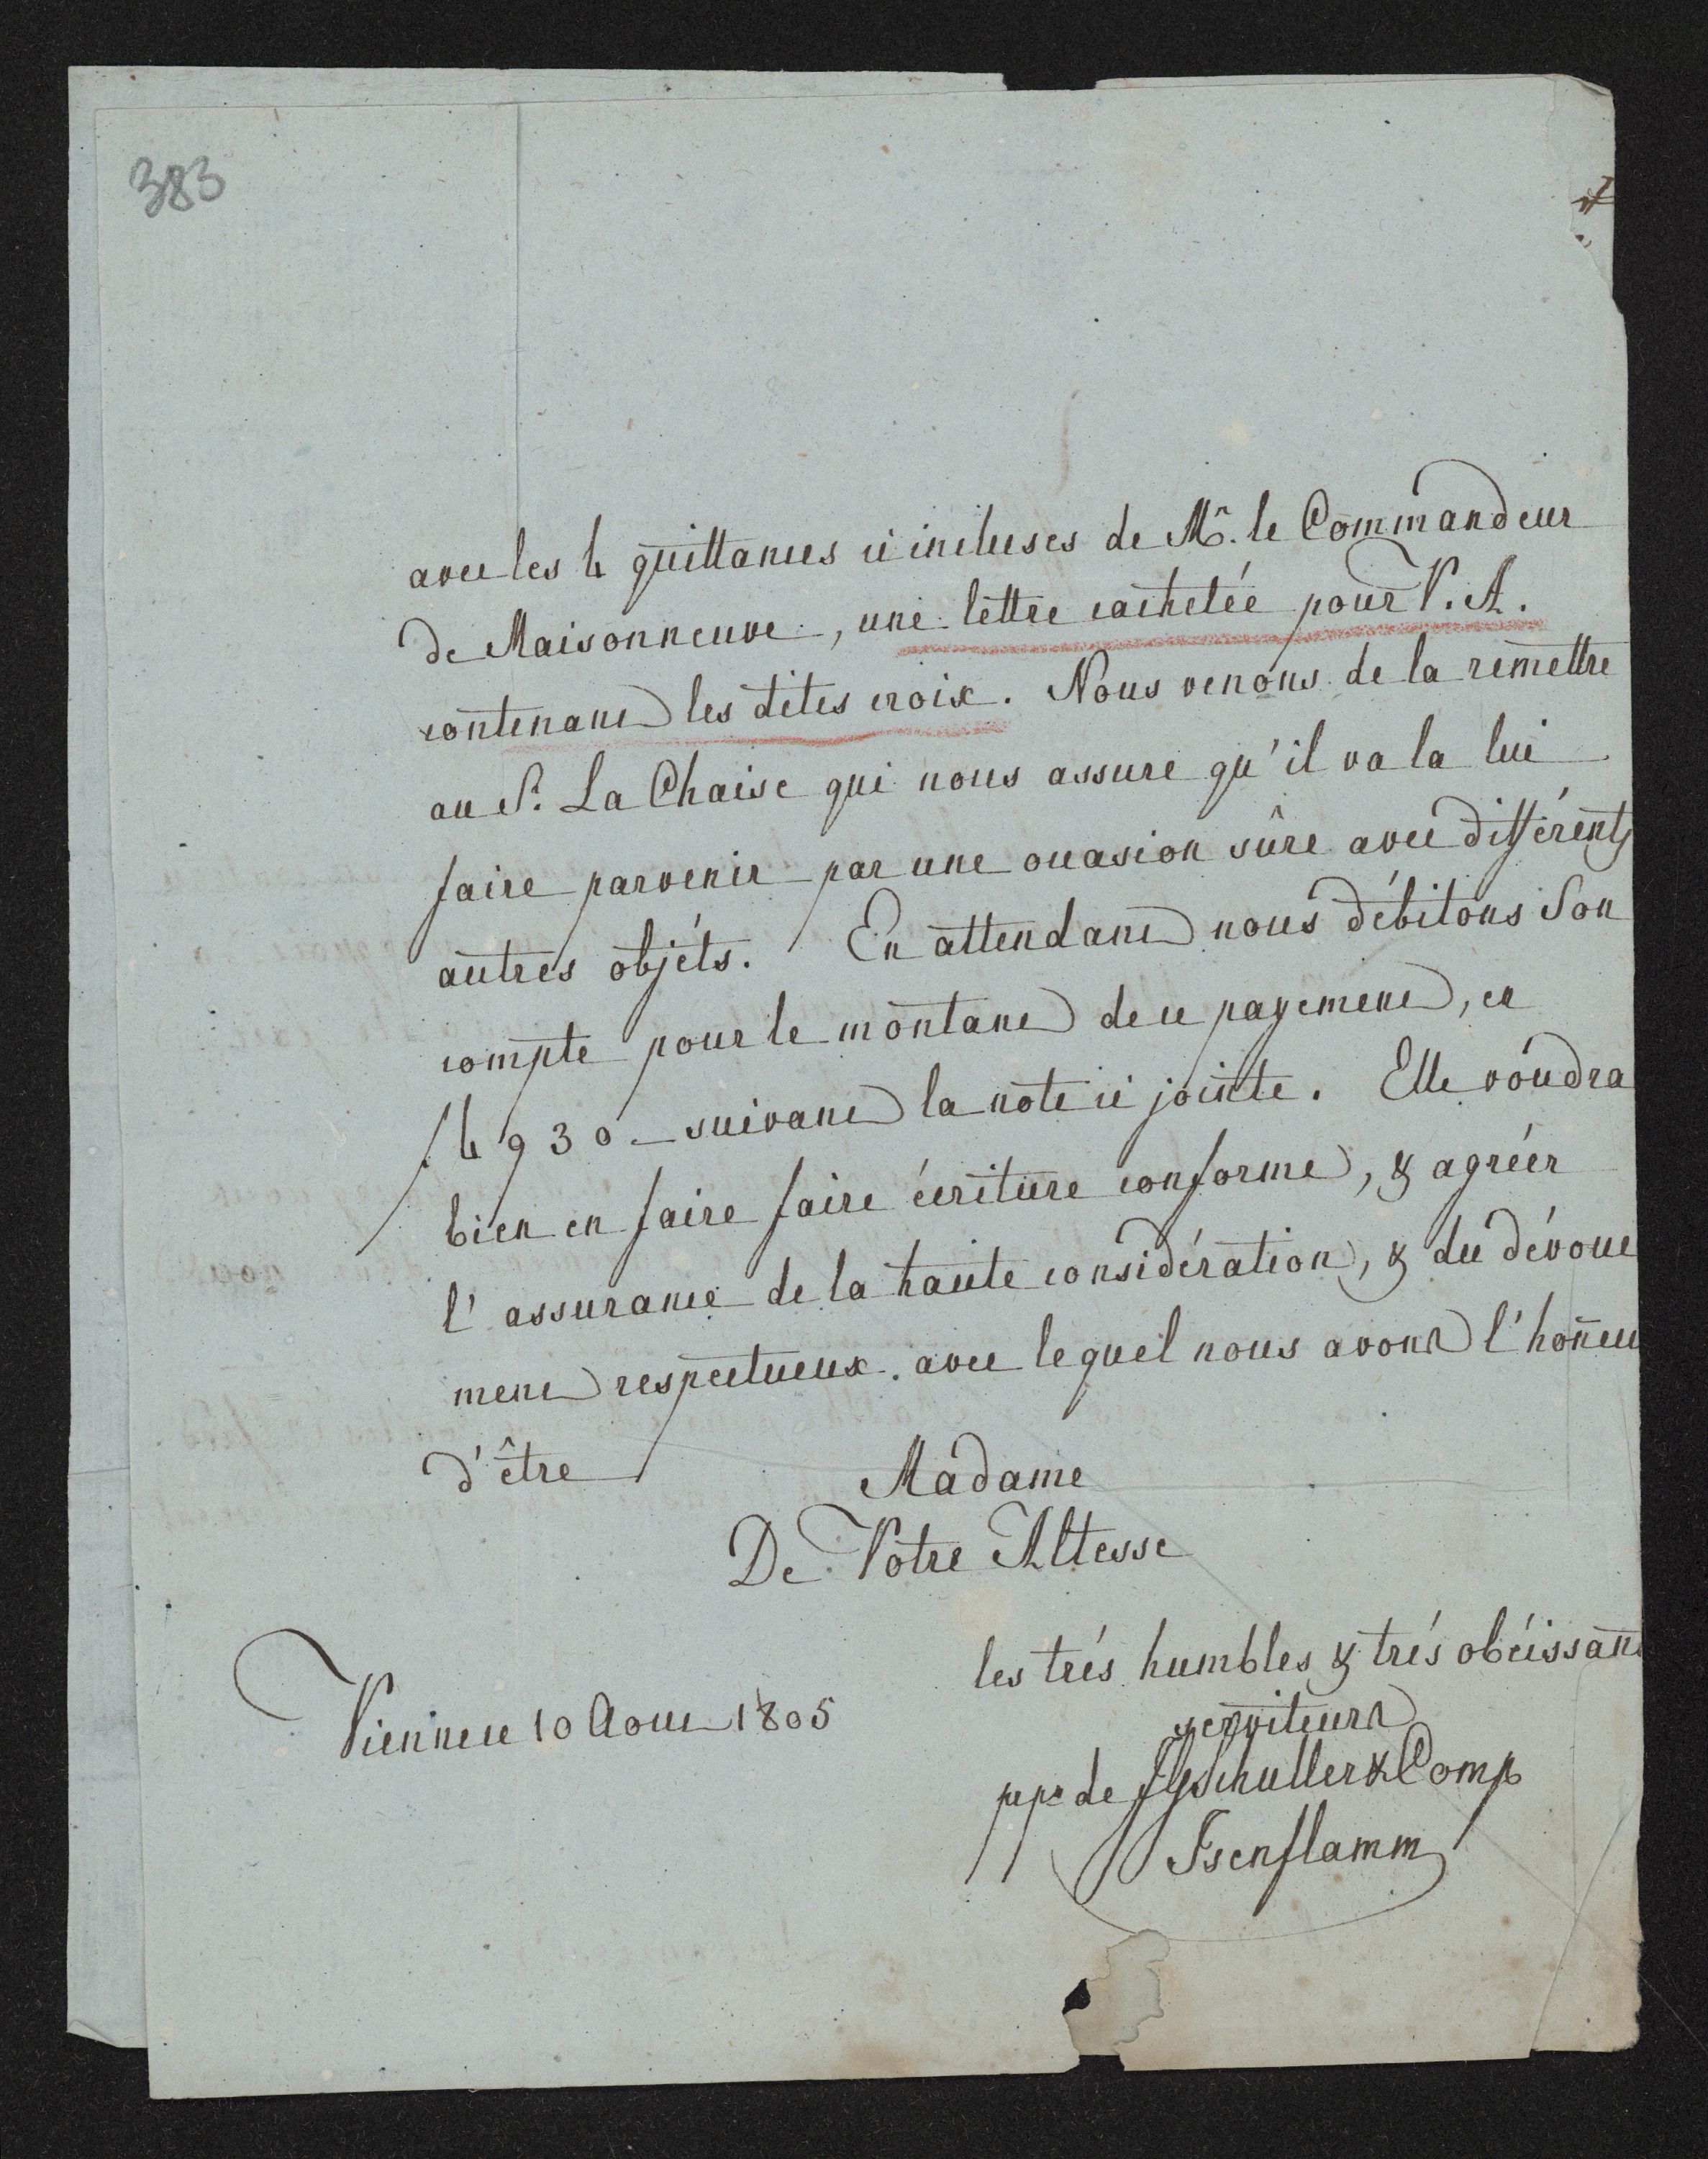 383
avec les 4 quittances ci incluses de Mr. le Commandeur
de Maisonneuve, une lettre cachetée pour V. A.
contenant les dites croix. Nous venons de la remettre
au S. La Chaise qui nous assure qu'il va la lui
faire parvenir par une occasion sûre avec différents
autres objéts. En attendant nous débitons Son
compte pour le montant de ce payement, en
f 4930 - suivant la note ci jointe. Elle voudra
bien en faire faire écriture conforme, & agréer
l'assurance de la haute considération, & du dévoue
ment respectueux avec lequel nous avons l'honneu
d'être Madame
De Votre Altesse
les trés humbles & trés obéissans
serviteurs
Vienne ce 10 Aout 1805
ppr de JGSchuller & Comp
Isenflamm